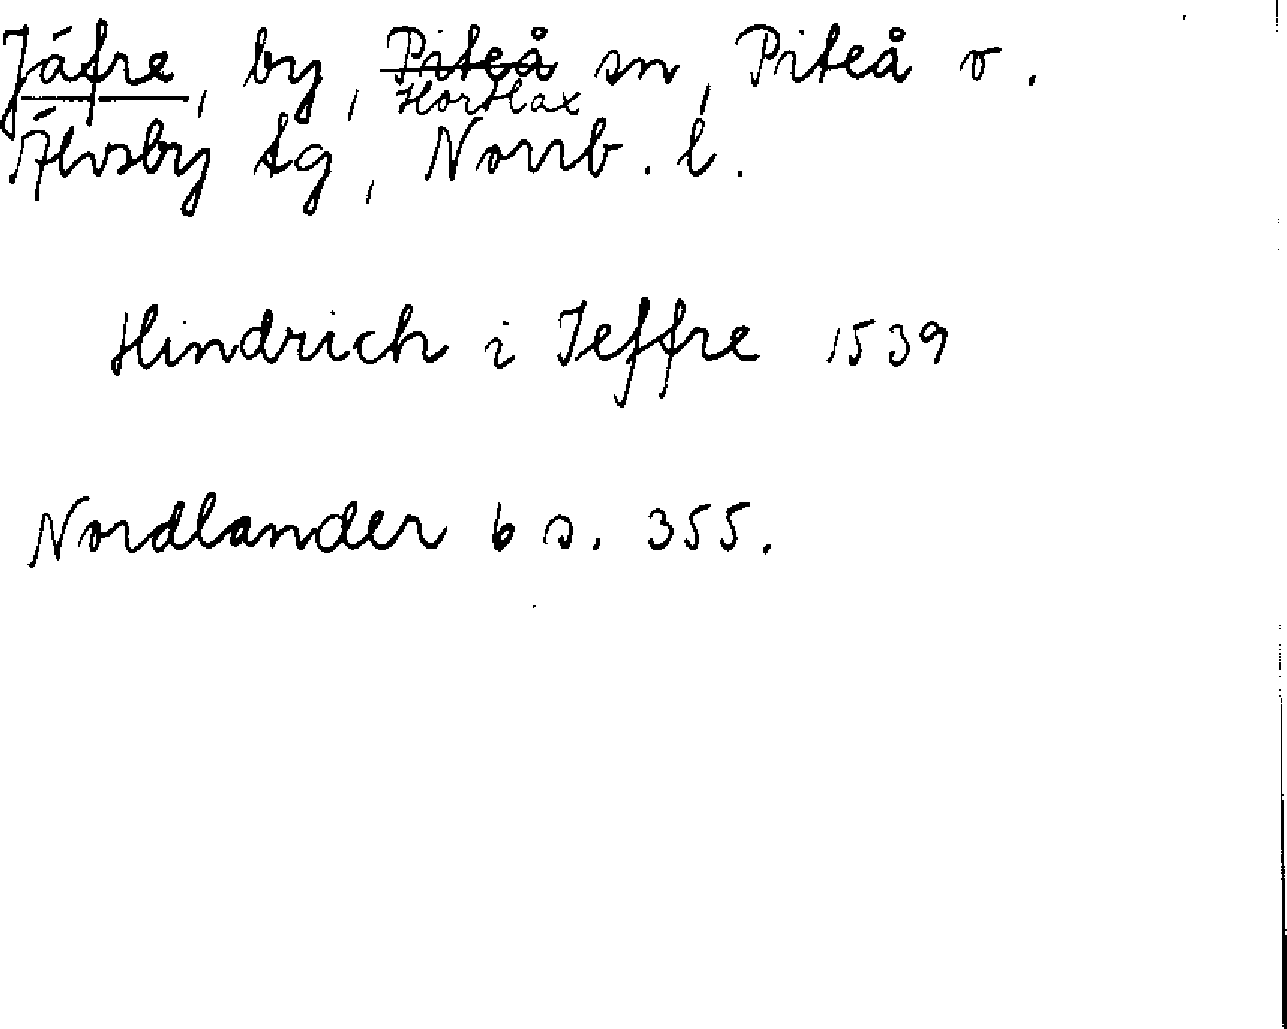 Jäfre, by, ~~Piteå~~ sn, Piteå v.
Hortlax
Älvsby tg, Norrb. l.
Hindrich i Jeffre 1539
Nordlander 6 s. 355.